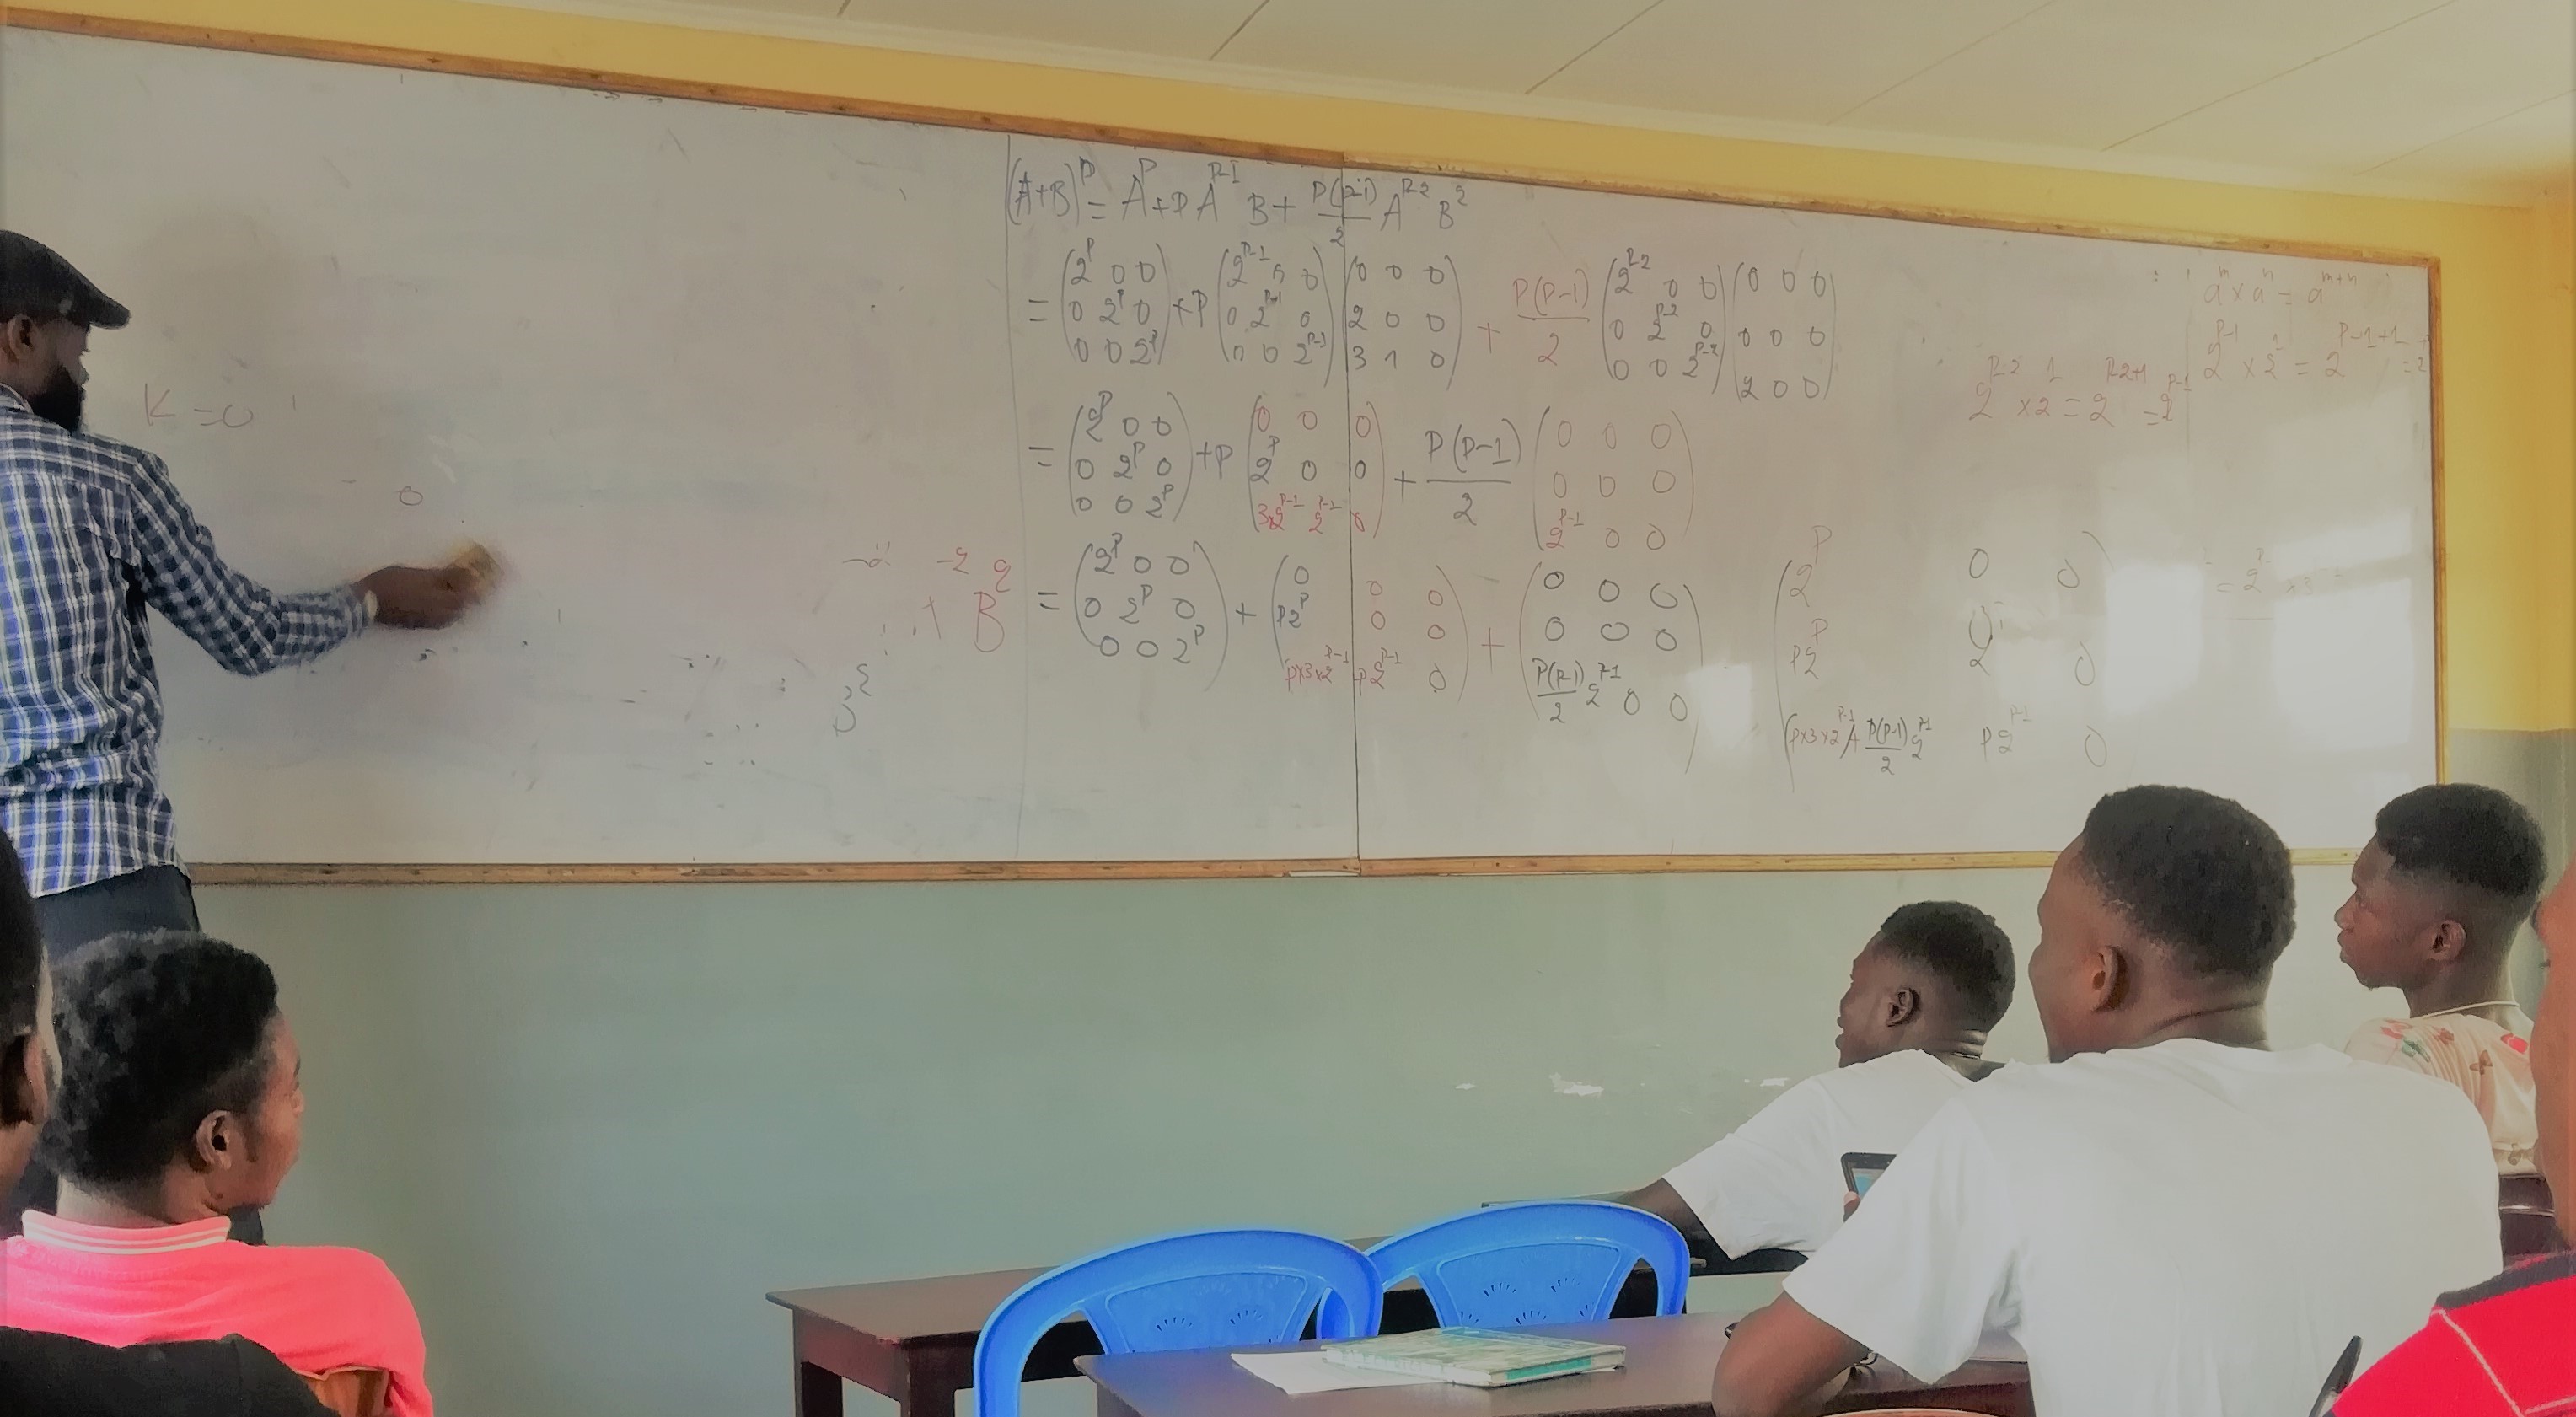 K = 0
0
-2 2
+ B
(A+B)^P = A^P + P A^{P-1} B + \frac{P(P-1)}{2} A^{P-2} B^2
= \begin{pmatrix} 2^P & 0 & 0 \\ 0 & 2^P & 0 \\ 0 & 0 & 2^P \end{pmatrix} + P \begin{pmatrix} 2^{P-1} & 0 & 0 \\ 0 & 2^{P-1} & 0 \\ 0 & 0 & 2^{P-1} \end{pmatrix} \begin{pmatrix} 0 & 0 & 0 \\ 2 & 0 & 0 \\ 3 & 1 & 0 \end{pmatrix} + \frac{P(P-1)}{2} \begin{pmatrix} 2^{P-2} & 0 & 0 \\ 0 & 2^{P-2} & 0 \\ 0 & 0 & 2^{P-2} \end{pmatrix} \begin{pmatrix} 0 & 0 & 0 \\ 0 & 0 & 0 \\ 2 & 0 & 0 \end{pmatrix}
= \begin{pmatrix} 2^P & 0 & 0 \\ 0 & 2^P & 0 \\ 0 & 0 & 2^P \end{pmatrix} + P \begin{pmatrix} 0 & 0 & 0 \\ 2^P & 0 & 0 \\ 3 \times 2^{P-1} & 2^{P-1} & 0 \end{pmatrix} + \frac{P(P-1)}{2} \begin{pmatrix} 0 & 0 & 0 \\ 0 & 0 & 0 \\ 2^{P-1} & 0 & 0 \end{pmatrix}
= \begin{pmatrix} 2^P & 0 & 0 \\ 0 & 2^P & 0 \\ 0 & 0 & 2^P \end{pmatrix} + \begin{pmatrix} 0 & 0 & 0 \\ P2^P & 0 & 0 \\ P \times 3 \times 2^{P-1} & P2^{P-1} & 0 \end{pmatrix} + \begin{pmatrix} 0 & 0 & 0 \\ 0 & 0 & 0 \\ \frac{P(P-1)}{2} 2^{P-1} & 0 & 0 \end{pmatrix}
\begin{pmatrix} 2^P & 0 & 0 \\ P2^P & 2 & 0 \\ (P \times 3 \times 2^{P-1}) + \frac{P(P-1)}{2} 2^{P-1} & P2^{P-1} & 0 \end{pmatrix}
a^m \times a^n = a^{m+n}
2^{P-1} \times 2^1 = 2^{P-1+1} = 2
2^{P-2} \times 2^1 = 2^{P-2+1} = 2^{P-1}